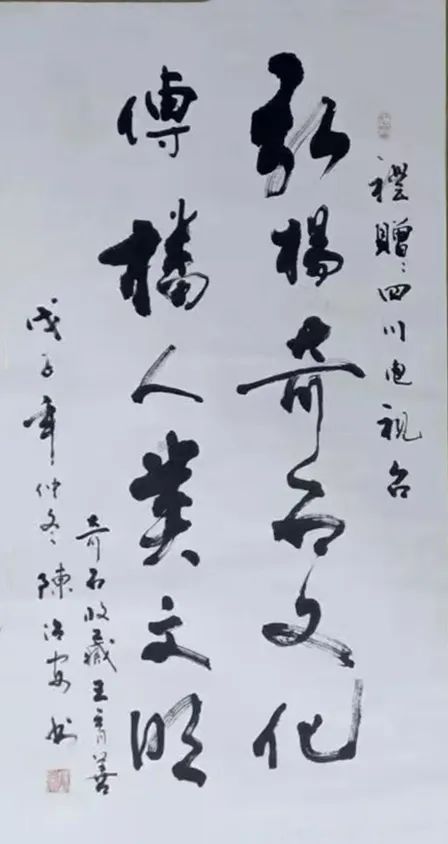 禮贈：四川电視台
弘楊奇石文化
傳播人類文明
奇石收藏王育善
戊子年仲冬陳治安书